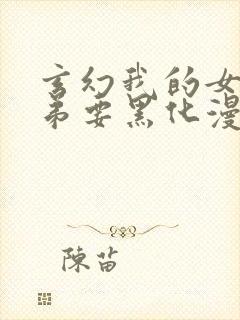 玄幻我的女
弟要黑化漫
陳苗